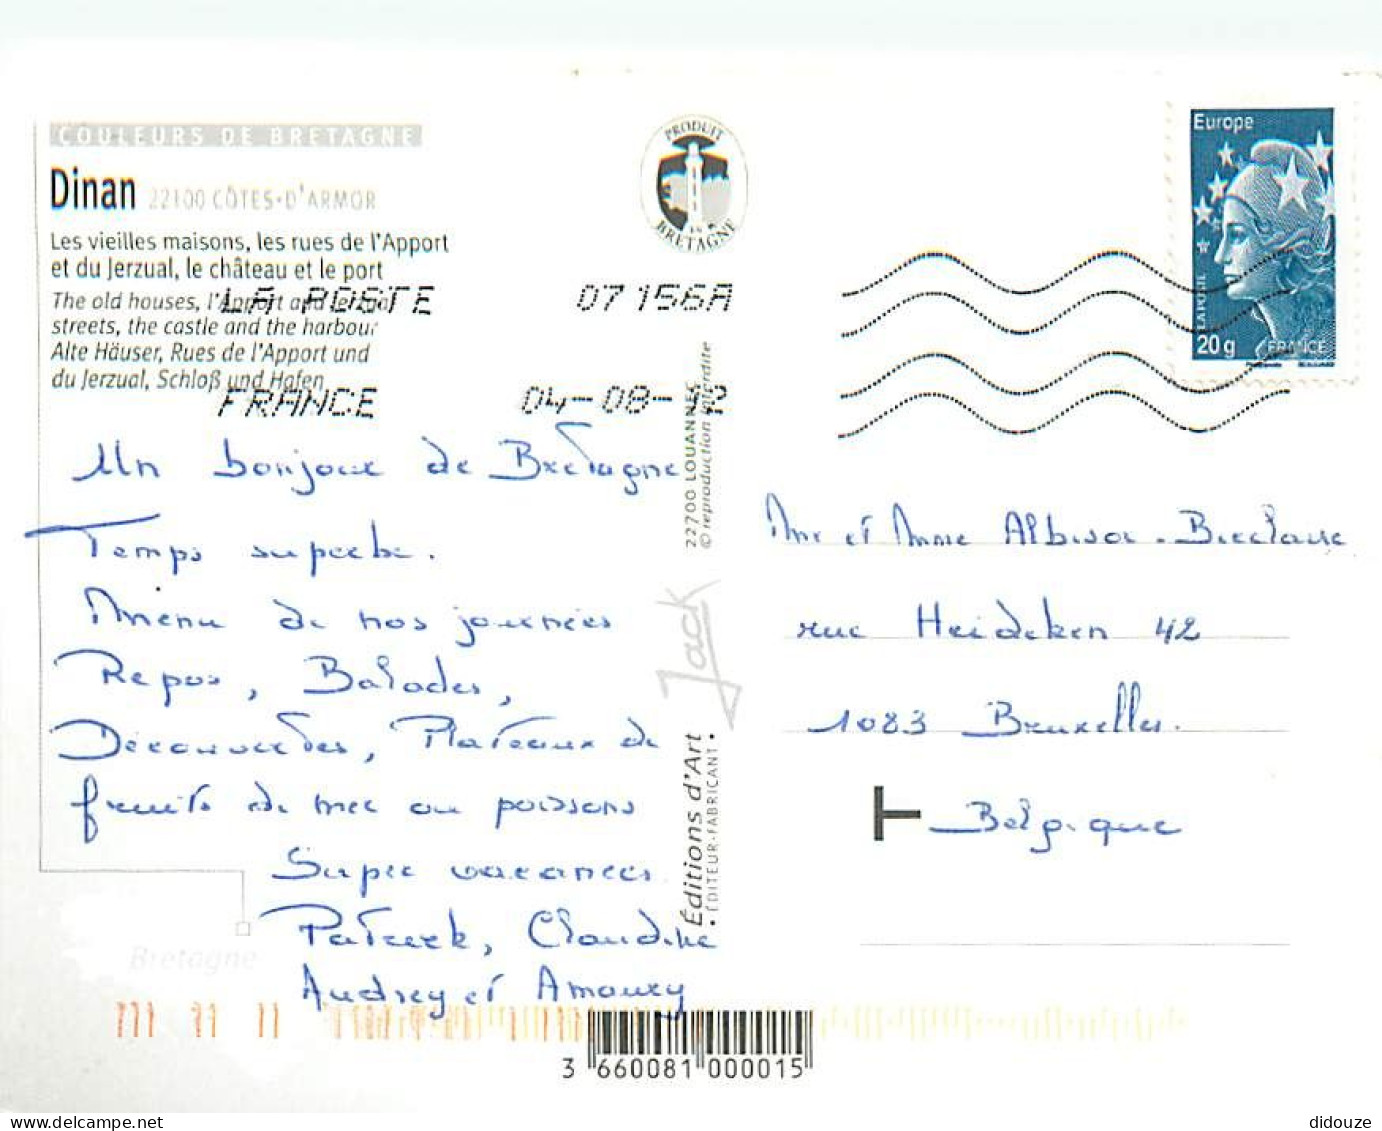 COULEURS DE BRETAGNE
Dinan 22100 CÔTES-D'ARMOR
Les vieilles maisons, les rues de l'Apport
et du Jerzual, le château et le port
The old houses, l'Apport and Jerzual
streets, the castle and the harbour
Alte Häuser, Rues de l'Apport und
du Jerzual, Schloß und Hafen
LA POSTE 07156A
FRANCE 04-08-12
Un bonjour de Bretagne
Temps superbe.
Menu de nos journées
Repos, Balades,
Découvertes, Plateaux de
fruits de mer ou poissons
Super vacances
Patrick, Claudine
Audrey et Amaury
Bretagne
PRODUIT
EN
BRETAGNE
22700 LOUANNEC
© reproduction interdite
Jack
Éditions d'Art
• ÉDITEUR-FABRICANT •
Europe
LA POSTE
20g FRANCE
Mr et Mme
rue Heideken 42
1083 Bruxelles.
T Belgique
3 660081 000015
didouze